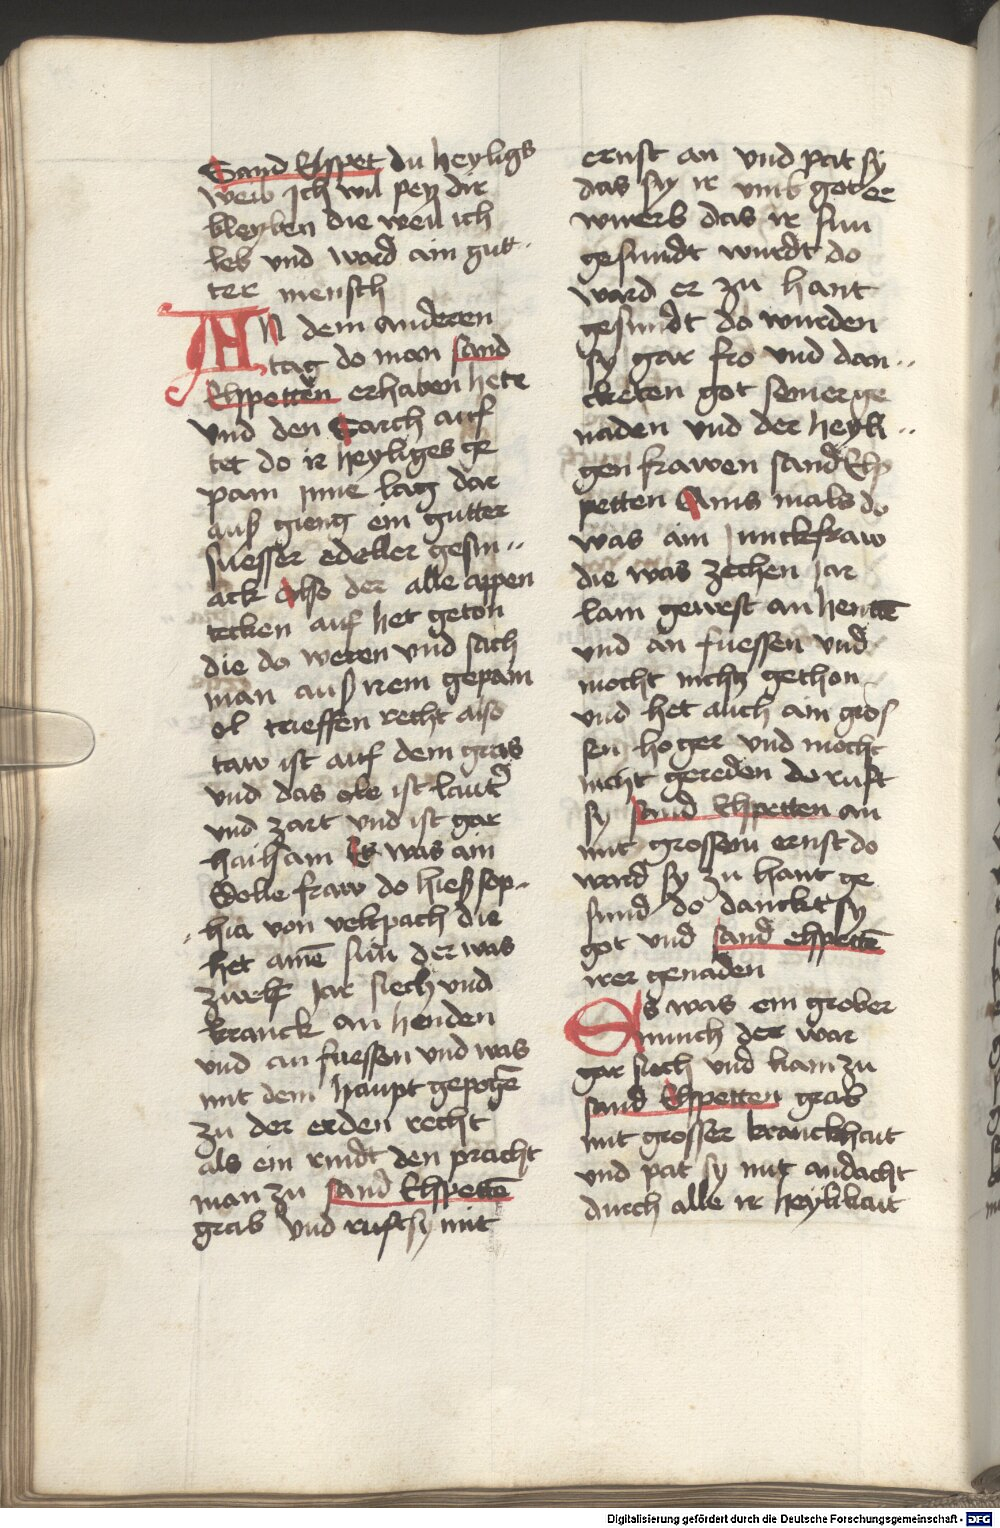 Sand Elspet du heyligs
weib Ich wil pey dir
bleyben die weil ich
leb und ward ain gut
ter mensch
AN dem anderen
tag do man sand
Elspetten erhaben hete
und den Sarch auf
tet do ir heyliges ge
pam inne lag dar
auß gieng ein gutter
suesser edeller gesm
ack Also der alle appen
tecken auf het geton
die do weren und sach
man auß irem gepain
ol trieffen recht also
taw ist auf dem gras
und das ole ist lautr
und zart und ist gar
hailsam Es was ain
Edelle fraw do hieß sop
hia von velpach die
het aine sun der was
zwelf Jar siech und
kranck an henden
und an fuessen und was
mit dem haupt gepoge
zu der erden recht
als ein rindt den pracht
man zu sand Elspette
grab und ruft sy mit
ernst an und pat sy
das sy ir umb got er
wuerb das ir sun
gesundt wurdt do
ward er zu hant
gesundt do wurden
sy gar fro und dan
cketen got seiner ge
naden und der heyli
gen frawen sand Elß
petten Ains mals do
was ain Junckfraw
die was zechen Jar
lam gewest an hente
und an fuessen und
mocht nichtz gethon
und het auch ain gros
sen hoger und mocht
nicht gereden do ruft
sy sand Elspetten an
mit grossem ernst do
ward sy zu hant ge
sund do danckt sy
got und sand elspette
irer genaden
Es was ein grober
munch der war
gar siech und kam zu
sand Elspetten grab
mit grosser kranckhait
und pat sy mit andacht
durch alle ir heylikait
Digitalisierung gefördert durch die Deutsche Forschungsgemeinschaft - DFG